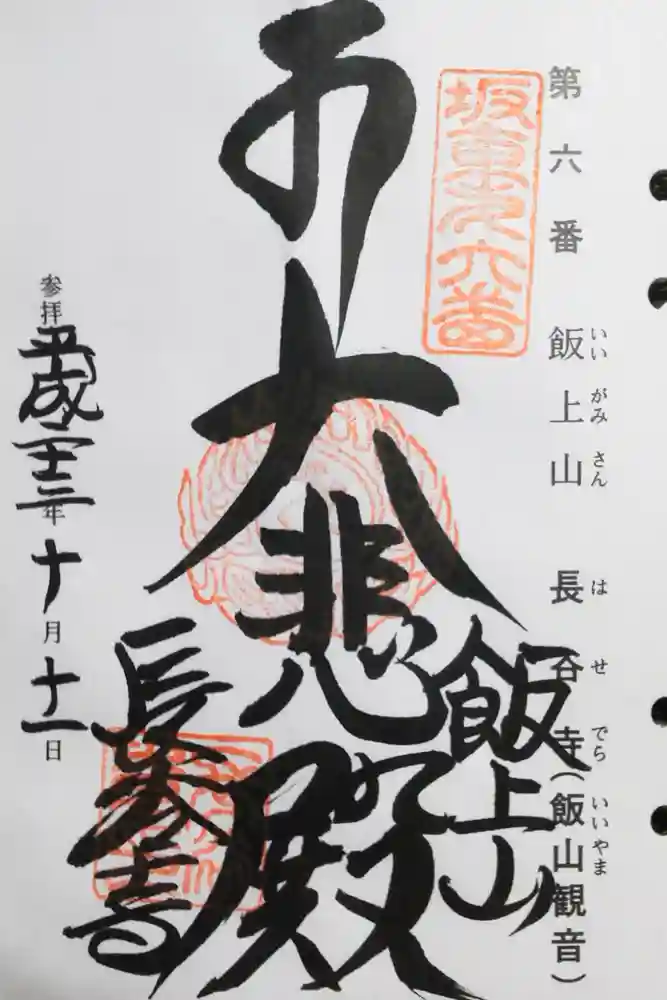 第六番 飯上山 長谷寺(飯山観音)
いいがみさん はせでら いいやま
坂東第六番
大悲殿
飯上山
長谷寺
参拝 平成二十三年十月十一日